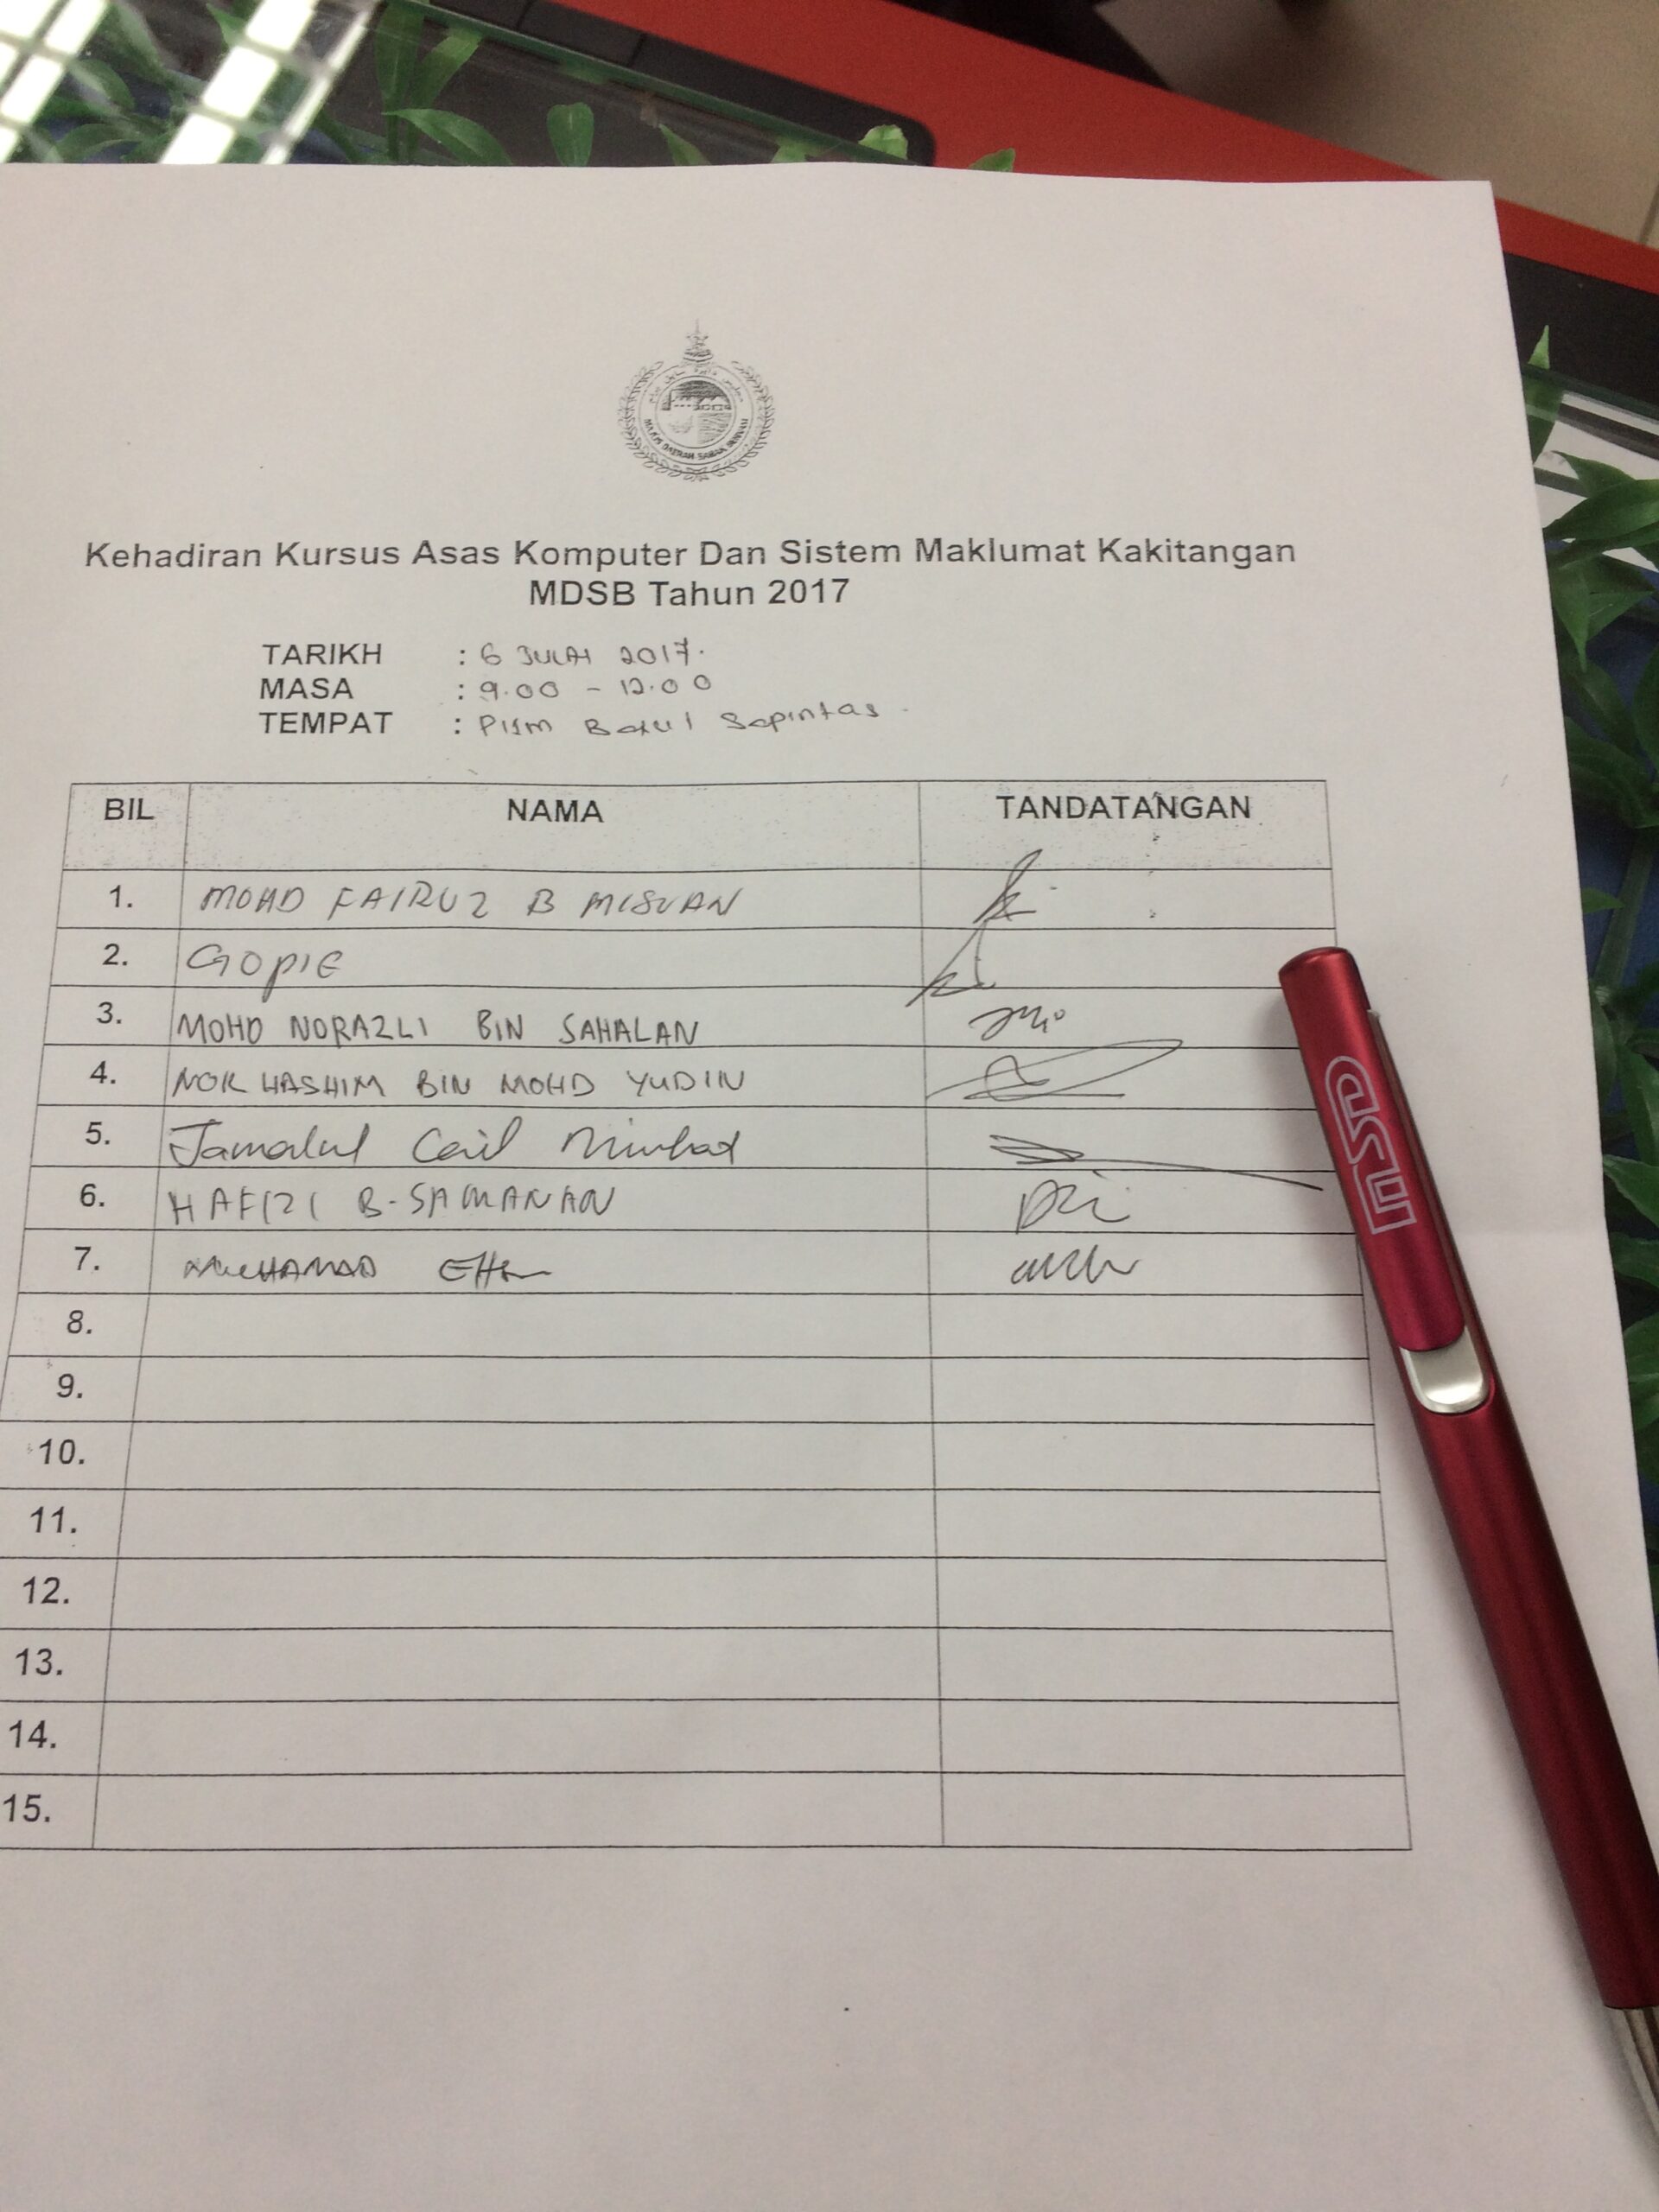 MAJLIS DAERAH SABAK BERNAM
Kehadiran Kursus Asas Komputer Dan Sistem Maklumat Kakitangan
MDSB Tahun 2017
TARIKH : 6 JULAI 2017.
MASA : 9.00 - 12.00
TEMPAT : Sepintas
BIL NAMA TANDATANGAN
1. MOHD FAIRUZ B MISUAN
2. GOPIE
3. MOHD NORAZLI BIN SAHALAN
4. NOR HASHIM BIN MOHD YUDIN
5. Jamalul
6. HAFIZI B. SAMANAN
7. MUHAMAD
8.
9.
10.
11.
12.
13.
14.
15.